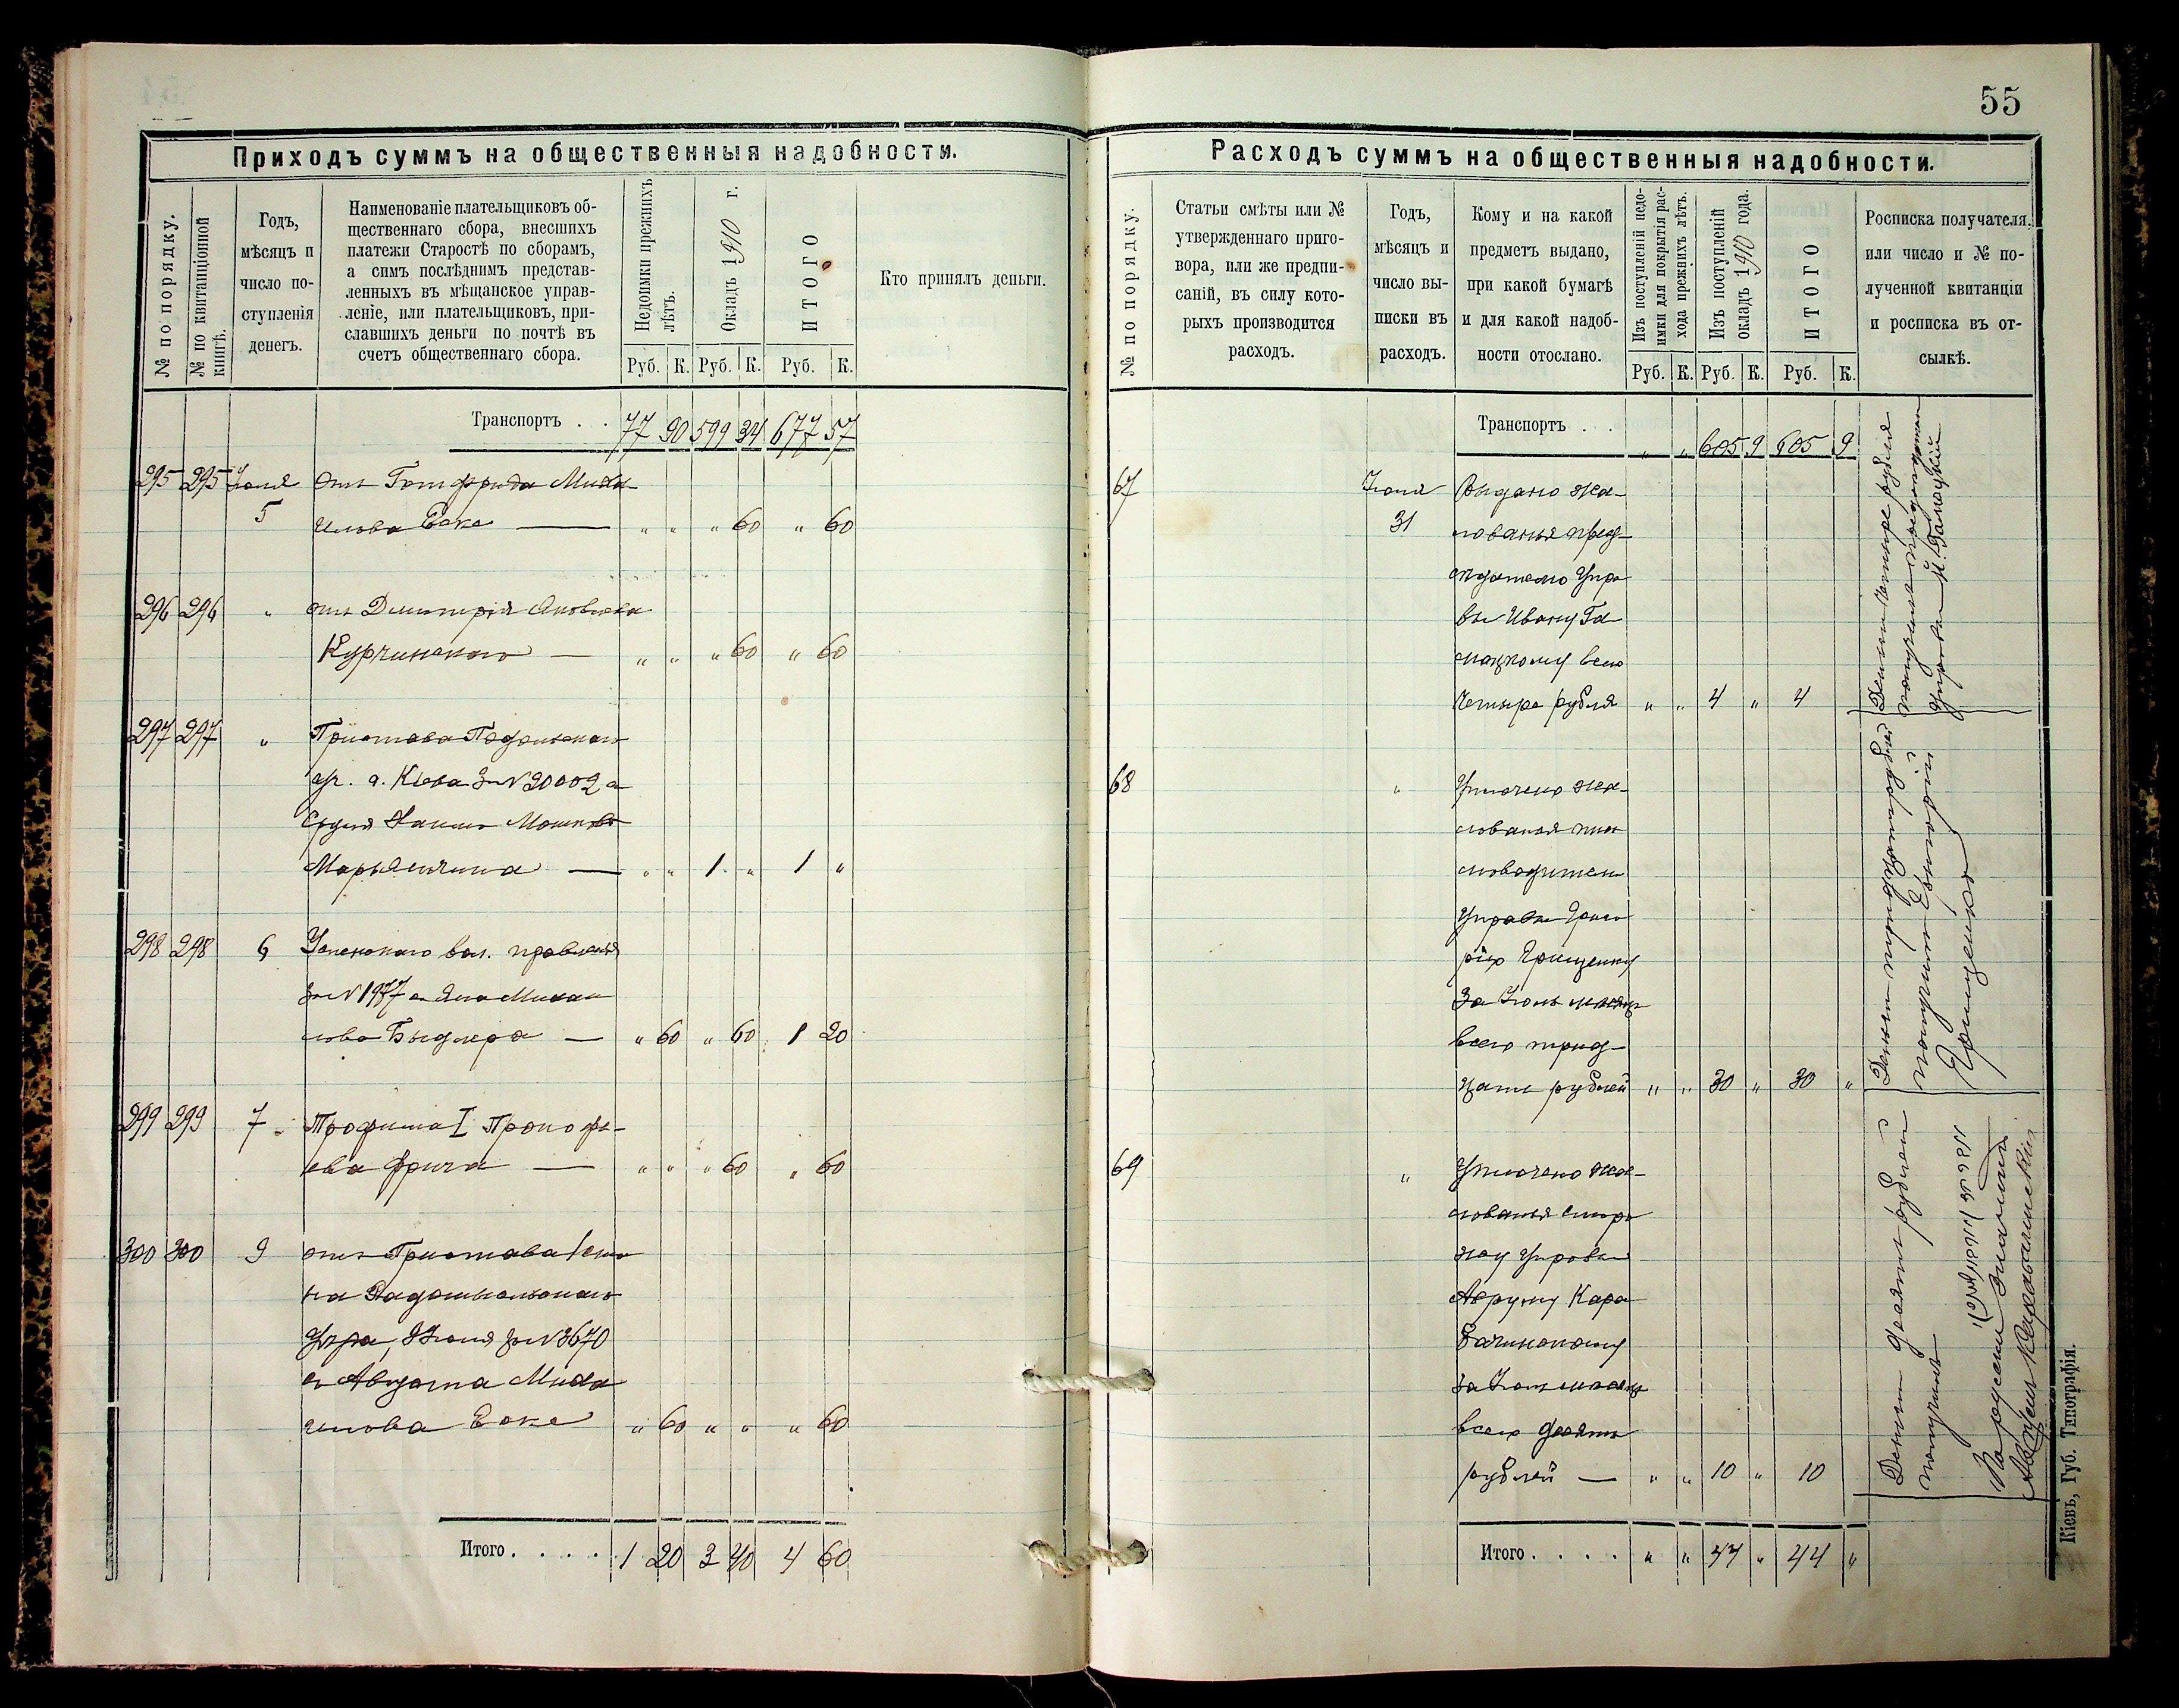 55
Приходъ суммъ на общественныя надобности.
№ по порядку.
№ по квитанціонной книгѣ.
Годъ,
мѣсяцъ и
число по-
ступленія
денегъ.
Наименованіе плательщиковъ об-
щественнаго сбора, внесшихъ
платежи Старостѣ по сборамъ,
а симъ послѣднимъ представ-
ленныхъ въ мѣщанское управ-
леніе, или плательщиковъ, при-
славшихъ деньги по почтѣ въ
счетъ общественнаго сбора.
Недоимки прежнихъ
лѣтъ.
Окладъ 1910 г.
ИТОГО
Кто принялъ деньги.
Руб. К. Руб. К. Руб. К.
Транспортъ . . 77 90 599 34 677 57
295 295 Іюля отъ Готфрида Миха-
5 илова Еске — " " " 60 " 60
296 296 " отъ Димитрія Яковлева
Курчинскаго — " " " 60 " 60
297 297 " Пристава Подольскаго
уч. г. Кіева за № 20002 съ
Сруля Хаима Мошкова
Марьянчика — " " 1 " 1 "
298 298 6 вол. правленія
за № 1977 съ Яна Михаи
лова Быдлера — " 60 " 60 1 20
299 299 7 Трофима I Прокофь-
ева Фрича — " " " 60 " 60
300 300 9 отъ Пристава I ста
на Радомысльскаго
уѣзда, 8 Іюля за № 3670
съ Августа Миха
илова Еске " 60 " " " 60
Итого . . . . . 1 20 3 40 4 60
Расходъ суммъ на общественныя надобности.
№ по порядку.
Статьи смѣты или №
утвержденнаго приго-
вора, или же предпи-
саній, въ силу кото-
рыхъ производится
расходъ.
Годъ,
мѣсяцъ и
число вы-
писки въ
расходъ.
Кому и на какой
предметъ выдано,
при какой бумагѣ
и для какой надоб-
ности отослано.
Изъ поступленій недо-
имки для покрытія рас-
хода прежнихъ лѣтъ.
Изъ поступленій
окладъ 1910 года.
ИТОГО
Росписка получателя,
или число и № по-
лученной квитанціи
и росписка въ от-
сылкѣ.
Руб. К. Руб. К. Руб. К.
Транспортъ . . " " 605 9 605 9
67 Іюля Выдано жа-
31 лованья пред-
сѣдателю Упра
вы Ивану Га
лацкому всего
Четыре рубля " " 4 " 4
Деньги четыре рубля
получилъ предсѣдатель
Управы И. Галацкій
68 " Уплочено жа-
лованья пись
моводителю
Управы Григо
рію Грищенку
за Іюль мѣсяцъ
всего трид-
цать рублей " " 30 " 30 "
Деньги тридцать рублей
получилъ Григорій
Грищенко
69 " Уплочено жа-
лованья сторо
жу Управы
Авруму Кара
бачинскому
за Іюль мѣсяцъ
всего десять
рублей — " " 10 " 10
Деньги десять рублей
получилъ
Итого . . . . " " 44 " 44 "
Кіевъ, Губ. Типографія.